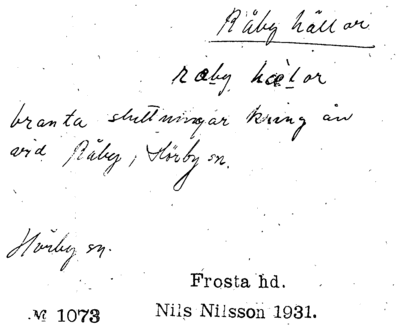 Råby hällor
råby hælor
branta sluttningar kring ån
vid Råby, Hörby sn.
Hörby sn.
Frosta hd.
№ 1073 Nils Nilsson 1931.